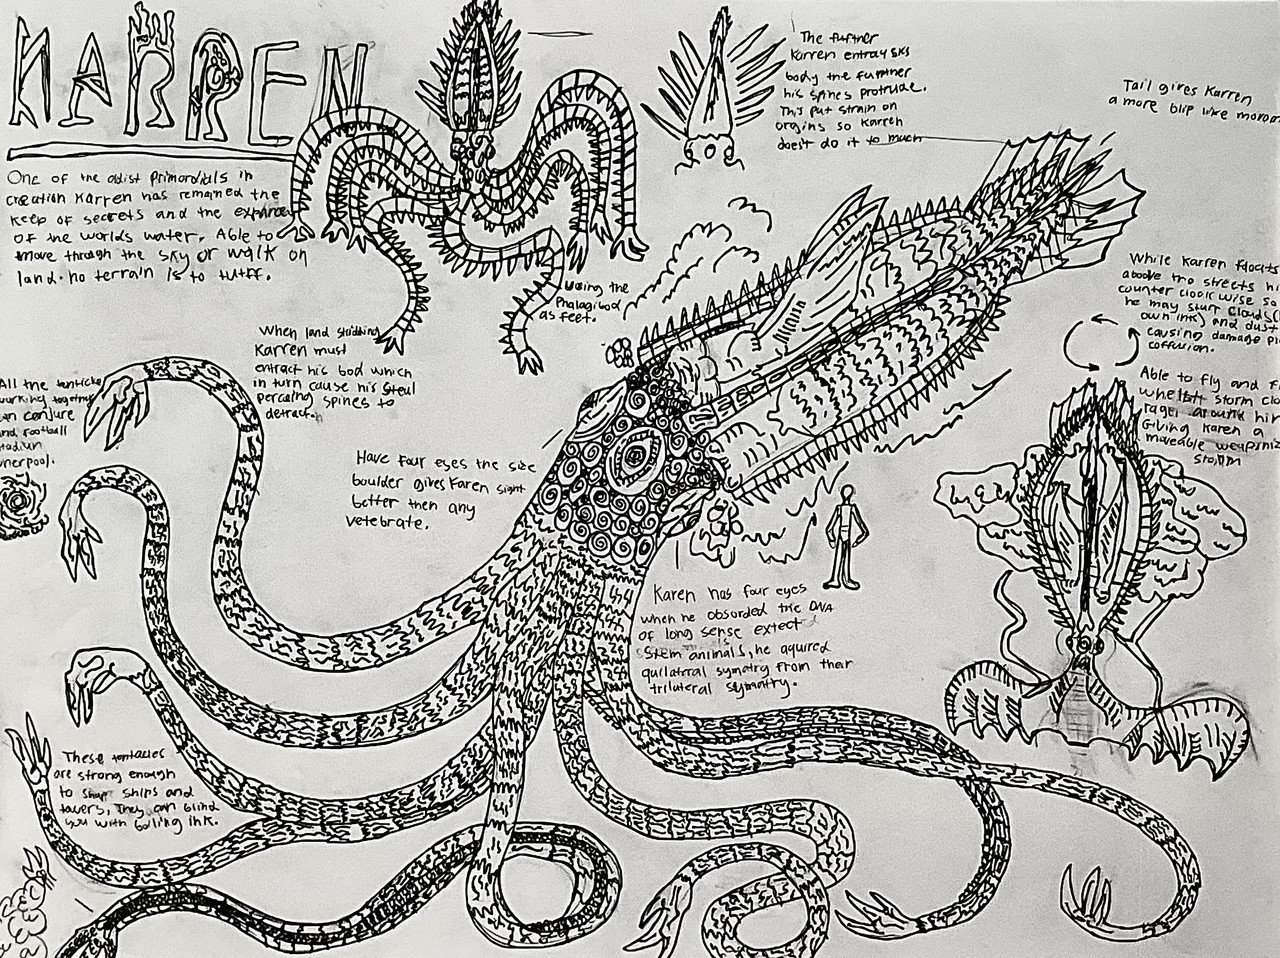 KARREN
One of the oldist primordials in
creation Karren has remained the
keep of secrets and the
of the worlds water. Able to
move through the sky or walk on
land. no terrain is to tuff.
The further
Karren entray sks
body the further
his spines protrude.
This put strain on
orgins so Karren
doesn't do it to much
Tail gives Karren
a more blip like
While Karren floats
above the streets hi
counter clock wise so
he may sturr clouds(
own ink) and dust
causing damage
coffusion.
Able to fly and f
whelst storm clo
rages around hi
Giving Karen a
moveable weaponiz
storm
using the
Phalagibod
as feet.
When land stridding
Karren must
entract his bod which
in turn cause his steul
percaing spines to
detract.
All the tenticle
working together
can conjure
and football
tadium
nerpool.
Have four eyes the size
boulder gives Karen sight
better then any
vetebrate.
Karen has four eyes
when he obsorded the DNA
of long sense extect
stem animals, he aquired
quilateral symatry from their
trilateral symatry.
These tentacles
are strong enough
to snap ships and
towers, They can blind
you with boiling ink.